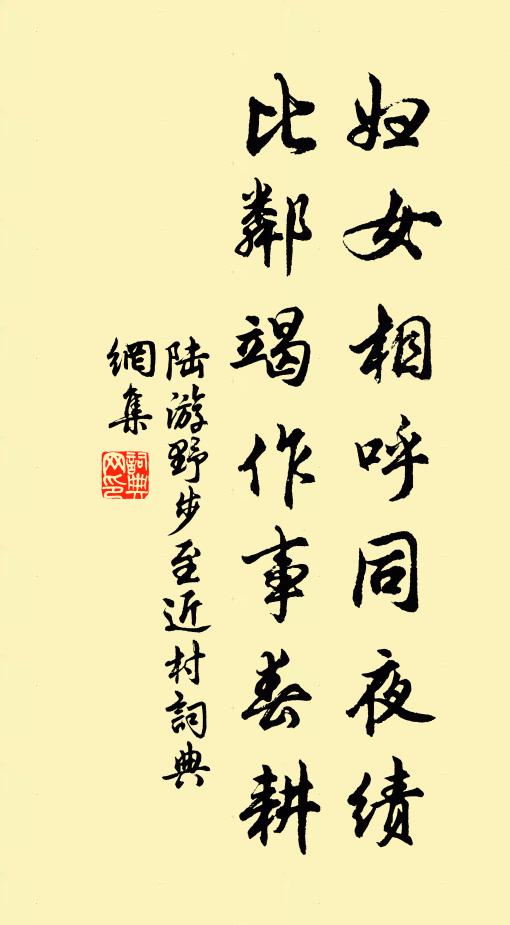 妇女相呼同夜绩
比鄰竭作事春耕
陆游野步至近村詞典
網集
詞典
网印